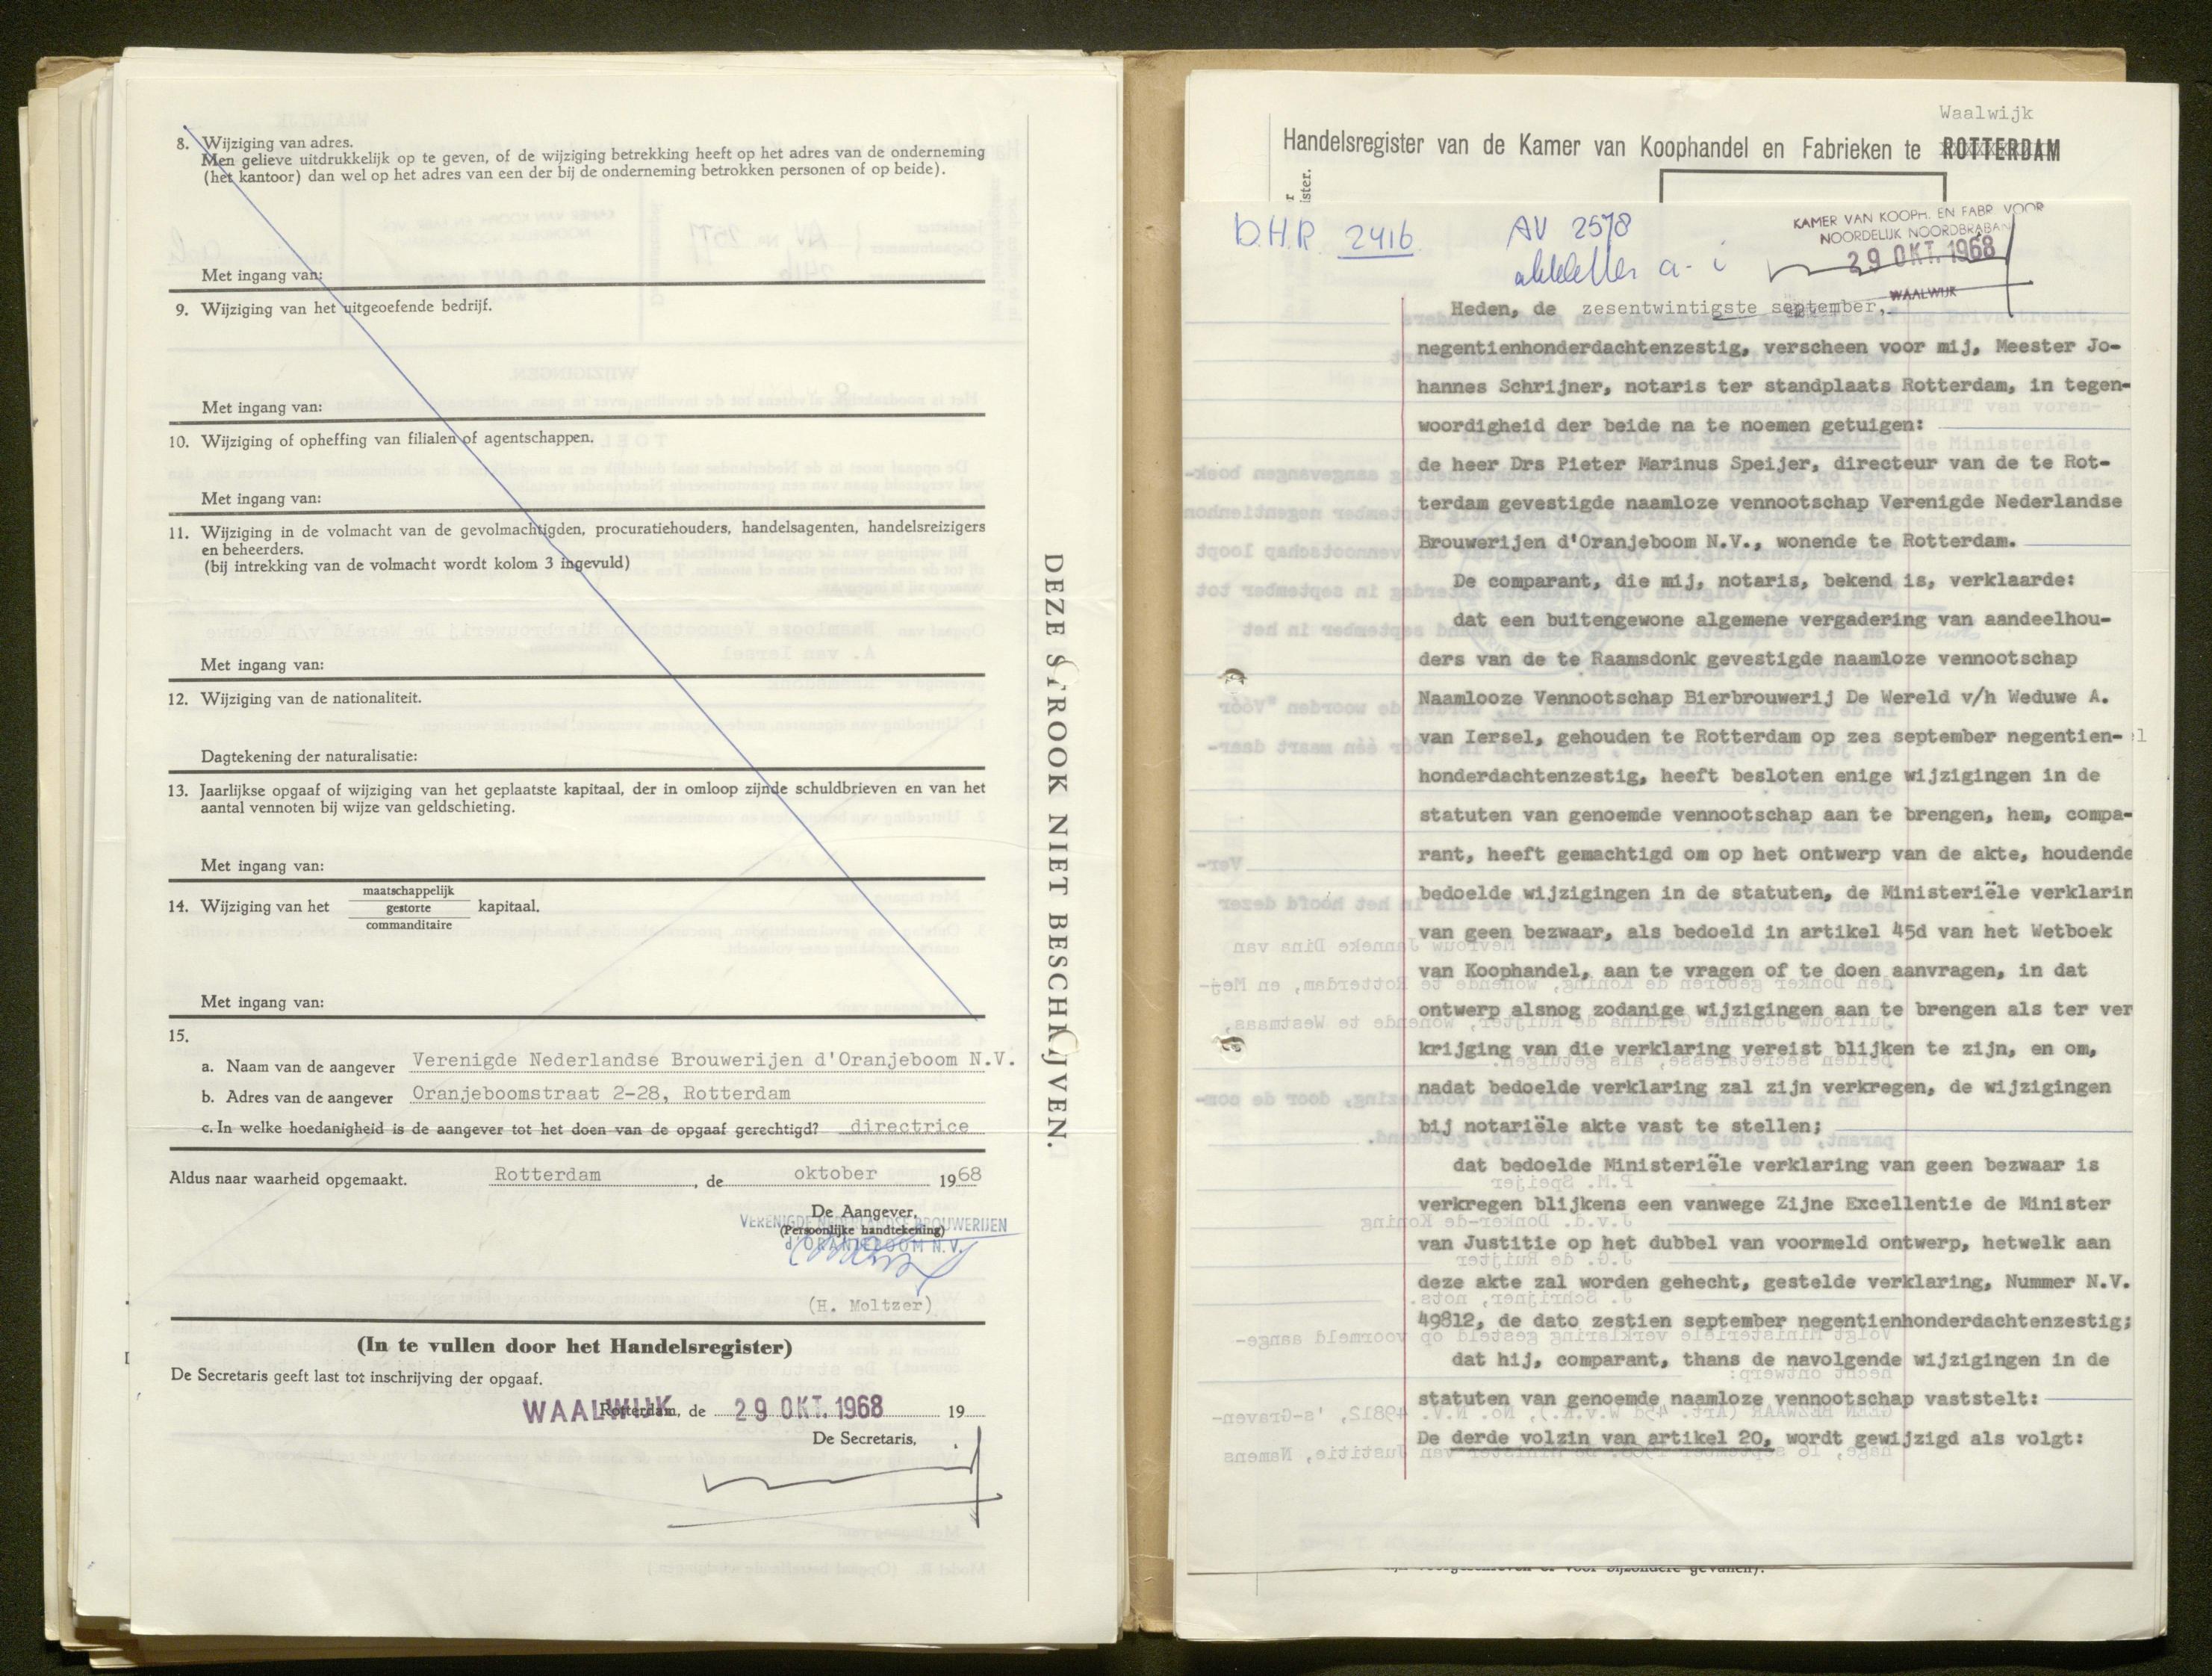 8. Wijziging van adres.
Men gelieve uitdrukkelijk op te geven, of de wijziging betrekking heeft op het adres van de onderneming
(het kantoor) dan wel op het adres van een der bij de onderneming betrokken personen of op beide).
Met ingang van:
9. Wijziging van het uitgeoefende bedrijf.
Met ingang van:
10. Wijziging of opheffing van filialen of agentschappen.
Met ingang van:
11. Wijziging in de volmacht van de gevolmachtigden, procuratiehouders, handelsagenten, handelsreizigers
en beheerders.
(bij intrekking van de volmacht wordt kolom 3 ingevuld)
Met ingang van:
12. Wijziging van de nationaliteit.
Dagtekening der naturalisatie:
13. Jaarlijkse opgaaf of wijziging van het geplaatste kapitaal, der in omloop zijnde schuldbrieven en van het
aantal vennoten bij wijze van geldschieting.
Met ingang van:
14. Wijziging van het maatschappelijk gestorte commanditaire kapitaal.
Met ingang van:
15.
a. Naam van de aangever Verenigde Nederlandse Brouwerijen d'Oranjeboom N.V.
b. Adres van de aangever Oranjeboomstraat 2-28, Rotterdam
c. In welke hoedanigheid is de aangever tot het doen van de opgaaf gerechtigd? directrice
Aldus naar waarheid opgemaakt. Rotterdam, de oktober 1968
De Aangever,
(Persoonlijke handtekening)
VERENIGDE NEDERLANDSE BROUWERIJEN
d'ORANJEBOOM N.V.
(H. Moltzer)
(In te vullen door het Handelsregister)
De Secretaris geeft last tot inschrijving der opgaaf.
WAALWIJK Rotterdam, de 29 OKT. 1968 19
De Secretaris,
DEZE STROOK NIET BESCHRIJVEN.
Waalwijk
Handelsregister van de Kamer van Koophandel en Fabrieken te ROTTERDAM
ister.
D.H.R. 2416
AV 2578
a - i
KAMER VAN KOOPH. EN FABR. VOOR
NOORDELIJK NOORDBRABAN
29 OKT. 1968
WAALWIJK
Heden, de zesentwintigste september,
negentienhonderdachtenzestig, verscheen voor mij, Meester Jo-
hannes Schrijner, notaris ter standplaats Rotterdam, in tegen-
woordigheid der beide na te noemen getuigen:
de heer Drs Pieter Marinus Speijer, directeur van de te Rot-
terdam gevestigde naamloze vennootschap Verenigde Nederlandse
Brouwerijen d'Oranjeboom N.V., wonende te Rotterdam.
De comparant, die mij, notaris, bekend is, verklaarde:
dat een buitengewone algemene vergadering van aandeelhou-
ders van de te Raamsdonk gevestigde naamloze vennootschap
Naamlooze Vennootschap Bierbrouwerij De Wereld v/h Weduwe A.
van Iersel, gehouden te Rotterdam op zes september negentien-
honderdachtenzestig, heeft besloten enige wijzigingen in de
statuten van genoemde vennootschap aan te brengen, hem, compa-
rant, heeft gemachtigd om op het ontwerp van de akte, houdende
bedoelde wijzigingen in de statuten, de Ministeriële verklarin
van geen bezwaar, als bedoeld in artikel 45d van het Wetboek
van Koophandel, aan te vragen of te doen aanvragen, in dat
ontwerp alsnog zodanige wijzigingen aan te brengen als ter ver
krijging van die verklaring vereist blijken te zijn, en om,
nadat bedoelde verklaring zal zijn verkregen, de wijzigingen
bij notariële akte vast te stellen;
dat bedoelde Ministeriële verklaring van geen bezwaar is
verkregen blijkens een vanwege Zijne Excellentie de Minister
van Justitie op het dubbel van voormeld ontwerp, hetwelk aan
deze akte zal worden gehecht, gestelde verklaring, Nummer N.V.
49812, de dato zestien september negentienhonderdachtenzestig;
dat hij, comparant, thans de navolgende wijzigingen in de
statuten van genoemde naamloze vennootschap vaststelt:
De derde volzin van artikel 20, wordt gewijzigd als volgt: